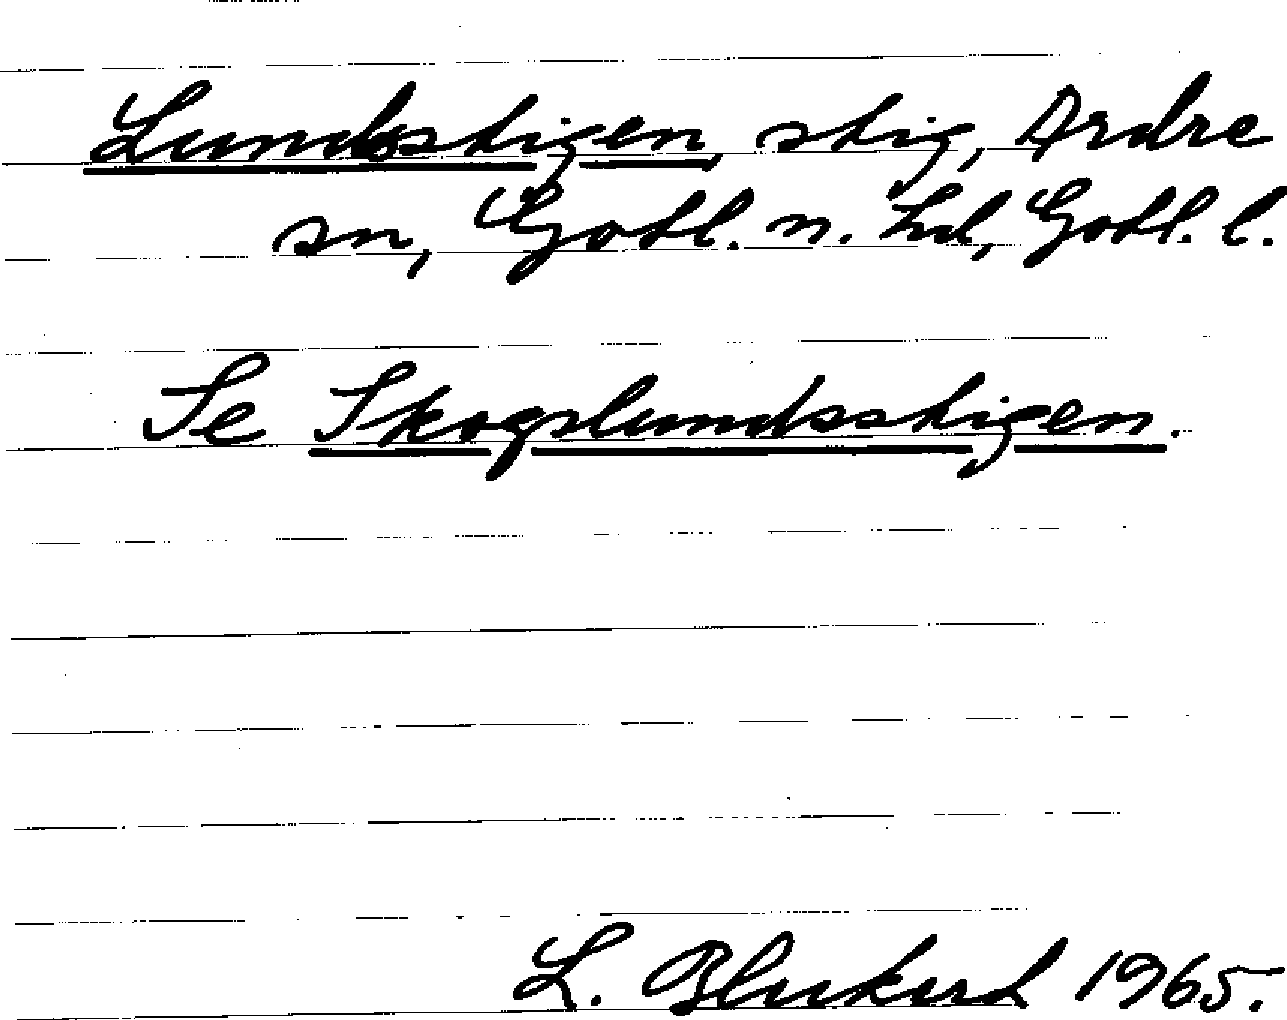 Lundsstigen, stig, Ardre
sn, Gotl. n. hd, Gotl. l.
Se Skogslundsstigen.
L. 1965.